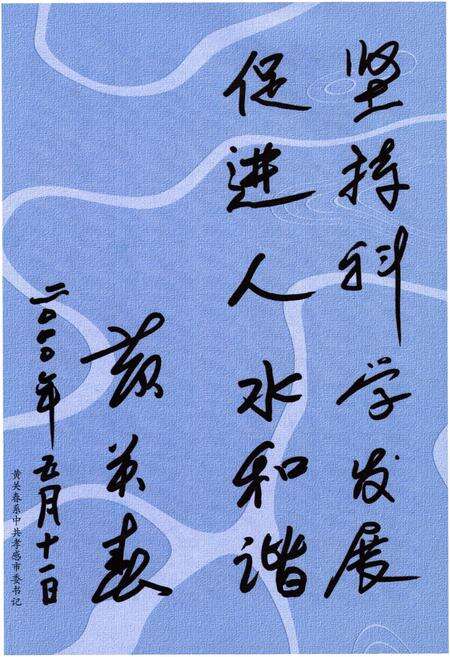 坚持科学发展
促进人水和谐
黄关春
年五月十一日
黄关春系中共孝感市委书记